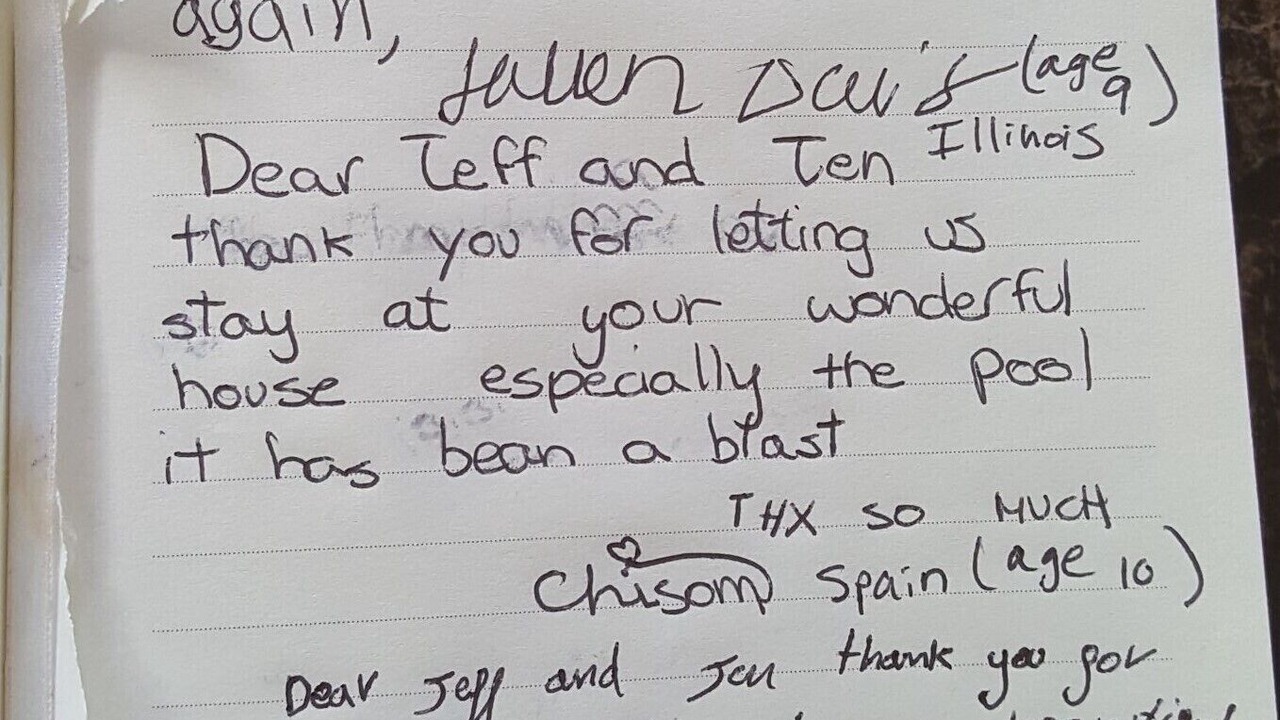 again,
Davis (age 9)
Illinois
Dear Jeff and Jen
thank you for letting us
stay at your wonderful
house especially the pool
it has bean a blast
THX SO MUCH
Chisom Spain (age 10)
Dear Jeff and Jen thank you for